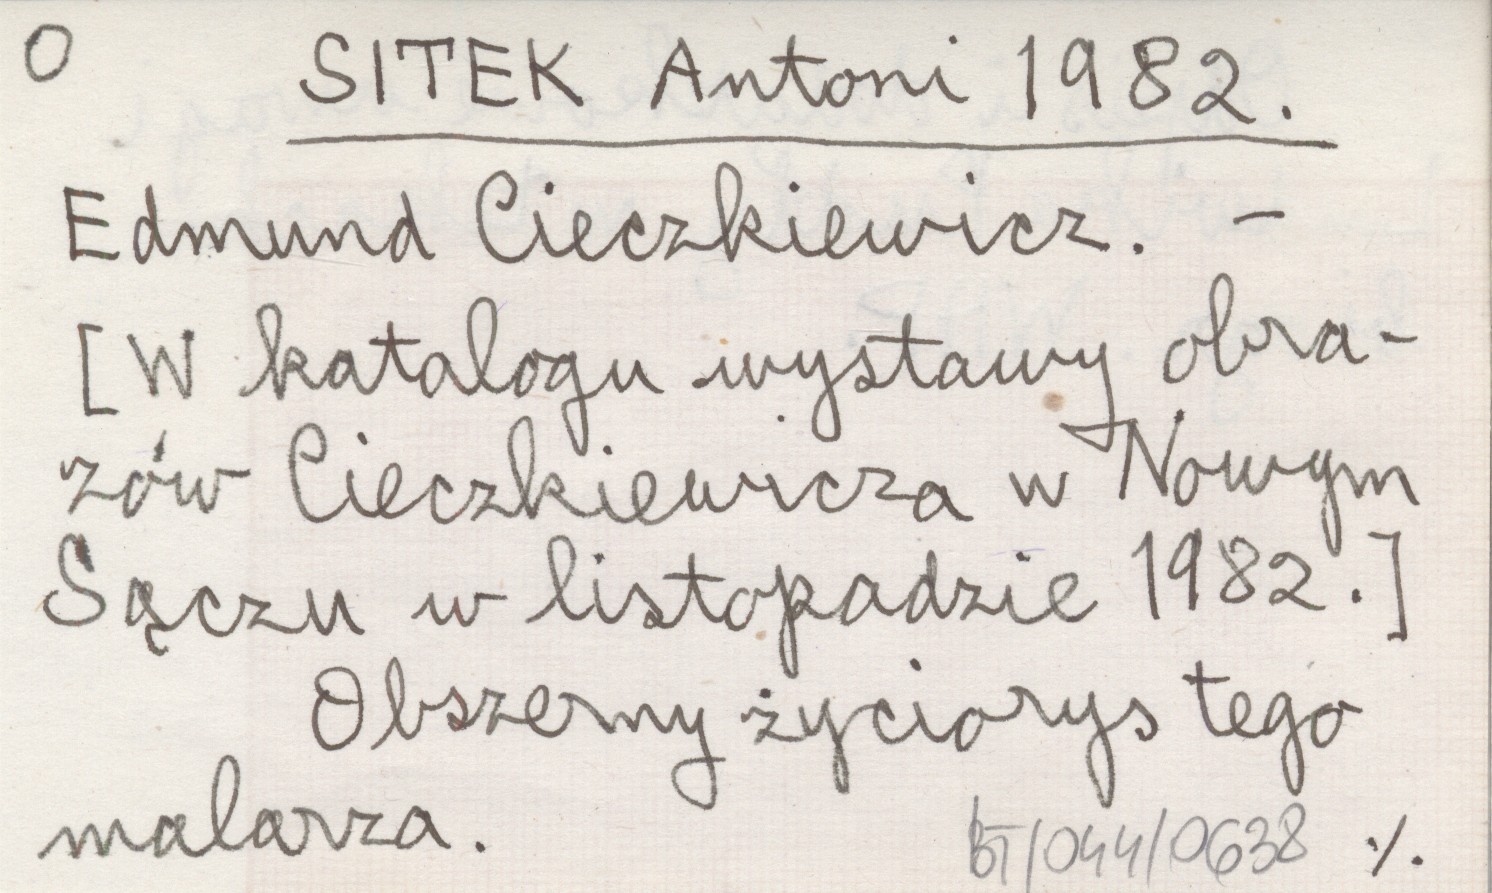 O SITEK Antoni 1982.
Edmund Cieczkiewicz. –
[W katalogu wystawy obra-
zów Cieczkiewicza w Nowym
Sączu w listopadzie 1982.]
Obszerny życiorys tego
malarza.
BT/044/0638 ./.